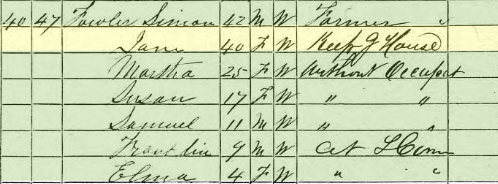 40 47 Fowler Simion 42 M W Farmer "
Jane 40 F W Keep g House
Martha 25 F W Without Occupat
Susan 17 F W " "
Samuel 11 M W " "
9 M W At Home
Elma 4 F W " "